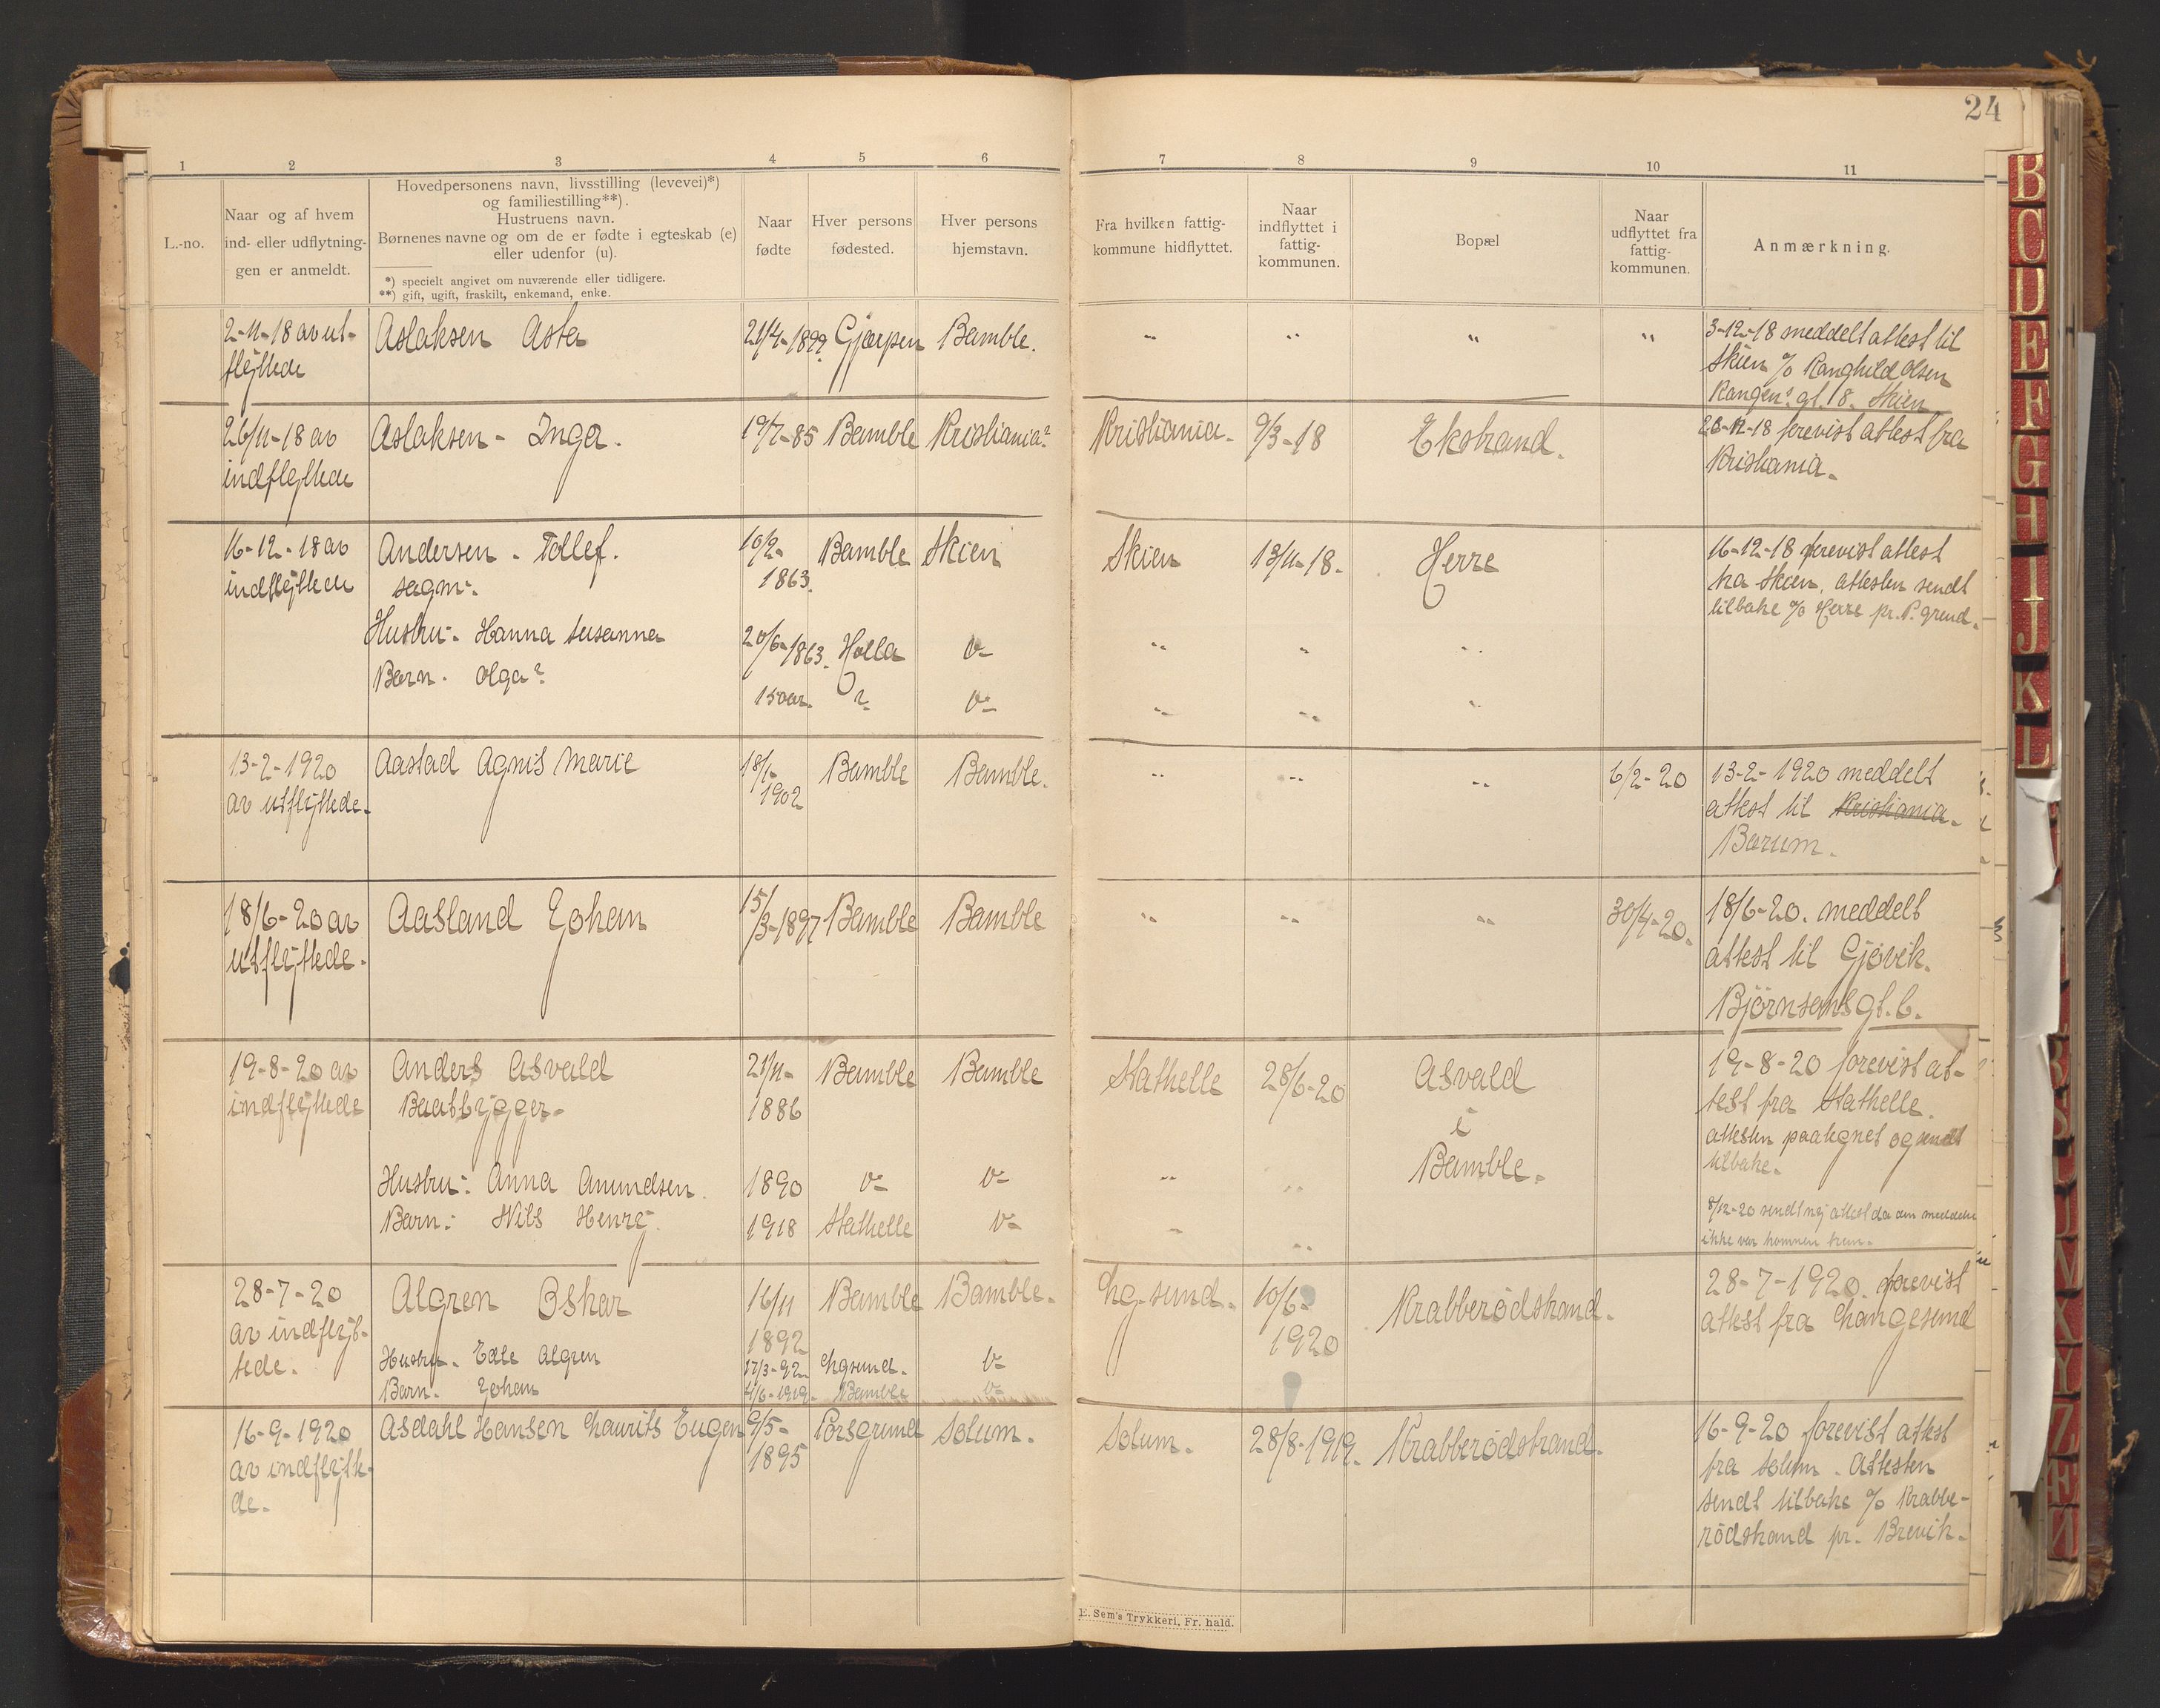 24
1 2 3 4 5 6 7 8 9 10 11
L.-no.
Naar og af hvem
ind- eller udflytnin-
gen er anmeldt.
Hovedpersonens navn, livsstilling (levevei)*)
og familiestilling**).
Hustruens navn.
Børnenes navne og om de er fødte i egteskab (e)
eller udenfor (u).
*) specielt angivet om nuværende eller tidligere.
**) gift, ugift, fraskilt, enkemand, enke.
Naar
fødte
Hver persons
fødested.
Hver persons
hjemstavn.
Fra hvilken fattig-
kommune hidflyttet.
Naar
indflyttet i
fattig-
kommunen.
Bopæl
Naar
udflyttet fra
fattig-
kommunen.
Anmærkning.
2-11-18 av ut-
flyttede
Aslaksen Asta
21/4-1899 Gjerpen Bamble.
" " " "
3-12-18 meddelt attest til
Skien % Ranghild Olsen
Rangen? gt. 18. Skien
26/11-18 av
indflyttede
Aslaksen - Inga.
19/7-85 Bamble Kristiania?
Kristiania. 9/3-18 Ekstrand.
26-11-18 forevist attest fra
Kristiania.
16-12-18 av
indflyttede
Andersen - Tollef.
sagm:
10/2-
1863.
Bamble Skien
Skien 13/11-18. Herre
16-12-18 forevist attest
fra Skien, attesten sendt
tilbake % Herre pr. P.grund.
Hustru: Hanna Susanna
20/6-1863. Holla v-
" " "
Barn. Olga?
15 aar. ? v-
" " "
13-2-1920
av utflyttede.
Aastad Agnis Marie
18/1-
1902
Bamble Bamble.
" " "
6/2-20
13-2-1920 meddelt
attest til Kristiania.
Bærum.
18/6-20 av
utflyttede.
Aasland Johan
15/3-1897 Bamble Bamble
" " "
30/4-20.
18/6-20. meddelt
attest til Gjøvik.
Bjørnsons gt. 6.
19-8-20 av
indflyttede
Anders Asvald
Baatbygger.
21/11-
1886
Bamble Bamble
Stathelle 28/6-20
Asvald
i
Bamble.
19-8-20 forevist at-
test fra Stathelle.
attesten paategnet og sendt
tilbake.
Hustru: Anna Amundsen.
1890 v- v-
" "
Barn: Nils Henry.
1918 Stathelle v-
" "
8/12-20 sendt ny attest da den meddelte
ikke var kommen frem.
28-7-20
av indflyt-
tede.
Algren Oskar
16/11
1892
Bamble Bamble.
Lg.sund. 10/6-
1920
Krabberødstrand.
28-7-1920. forevist
attest fra Langesund
Hustru. Edle Algren
17/3-92. Lgsund. v-
Barn. Johan
4/6-1919. Bamble v-
16-9-1920
av indflytte-
de.
Asdahl Hansen Laurits Eugen
9/5-
1895
Porsgrund Solum.
Solum. 28/8-1919. Krabberødstrand.
16-9-20 forevist attest
fra Solum. Attesten
sendt tilbake % Krabbe-
rødstrand pr. Brevik.
E. Sem's Trykkeri, Fr. hald.
B
C
D
E
F
G
H
I
J
K
L
X
Y
Z
Æ